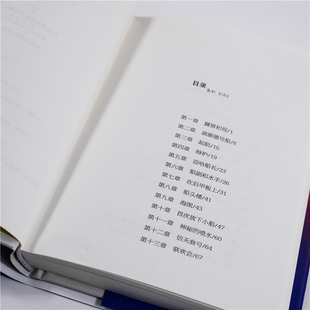 目录
第一章 初现/1
第二章 裴廓德号船/8
第三章 起航/15
第四章 辩护/19
第五章 亚哈船长/23
第六章 船副和水手/26
第七章 在后甲板上/31
第八章 船头楼/41
第九章 海图/43
第十章 首次放下小船/47
第十一章 神秘的喷水/60
第十二章 信天翁号/64
第十三章 联欢会/67